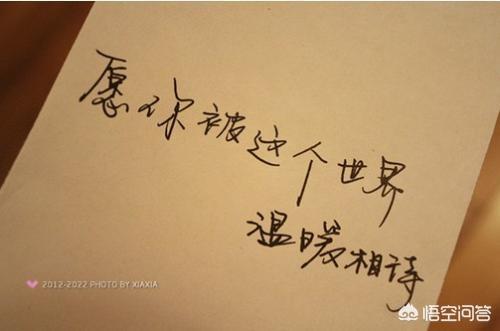 愿你被这个世界
温暖相待
2012-2022 PHOTO BY XIAXIA
悟空问答